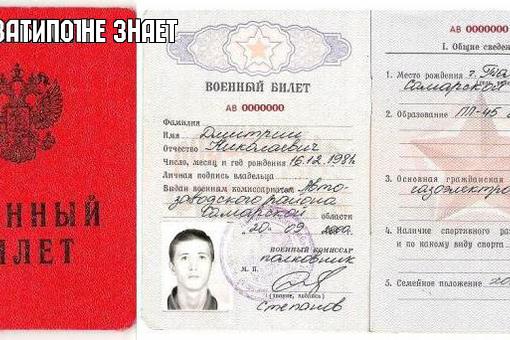 ЗАТИПОТНЕ ЗНАЕТ
ЕННЫЙ
ИЛЕТ
ВОЕННЫЙ БИЛЕТ
АВ 0000000
Фамилия
Имя Дмитрий
Отчество Николаевич
Число, месяц и год рождения 16.12.198
Личная подпись владельца
Выдан военным комиссариатом Авто-
заводского района
Самарской области
20 09
ВОЕННЫЙ КОМИССАР
полковник
М. П.
(звание, подпись)
Степанов
АВ 0000000
I. Общие сведе
1. Место рождения г.
Самарской
2. Образование ПЛ-45
3. Основная гражданская
газоэлектро
4. Наличие спортивного раз
и по какому виду спорта
5. Семейное положение хо